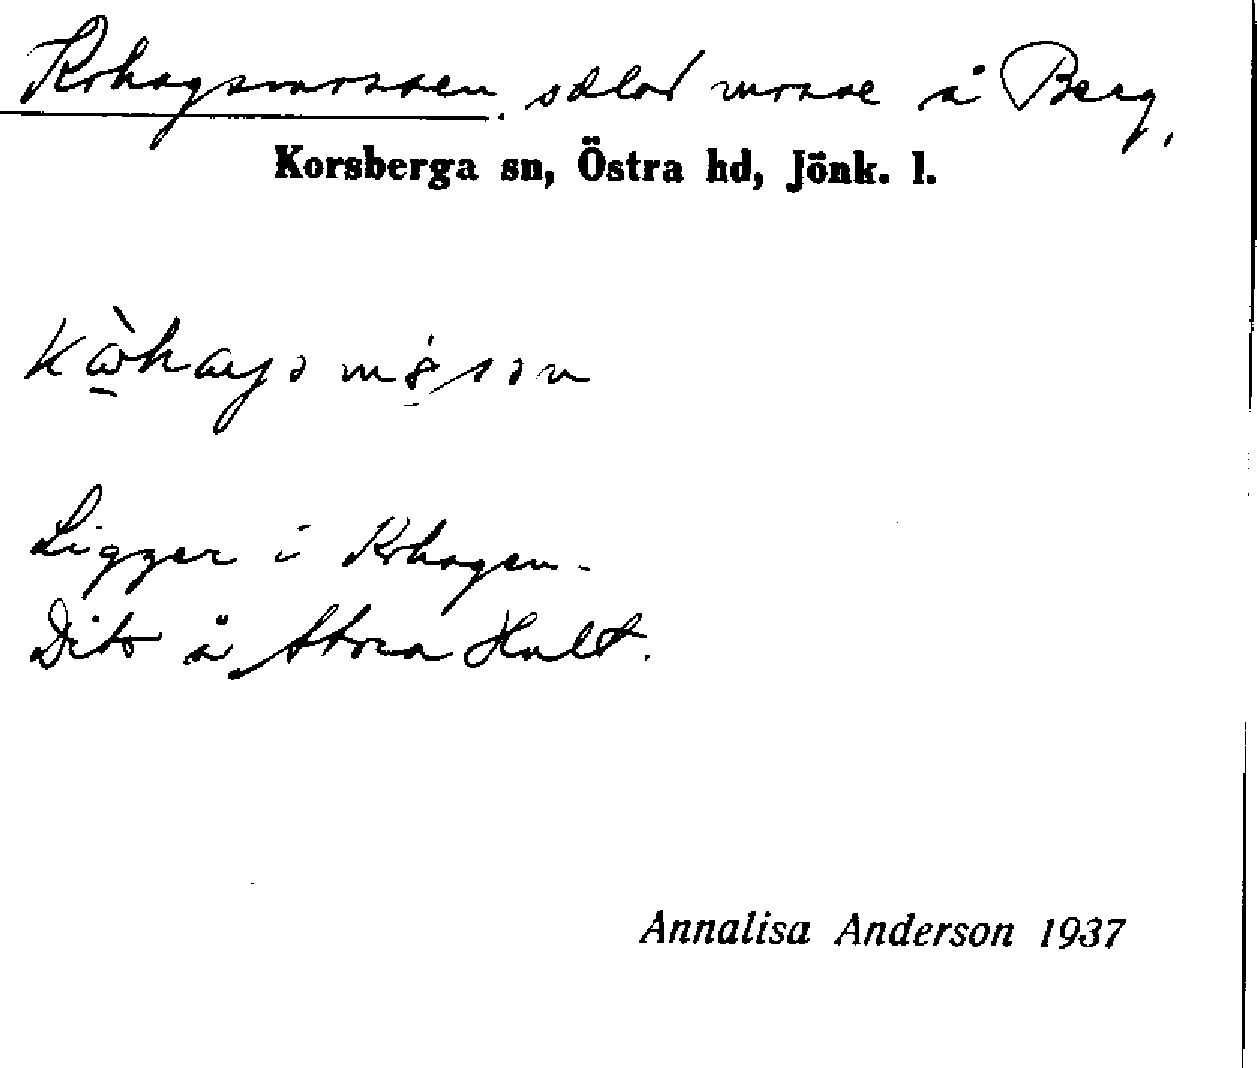 Kohagsmossen, odlad mosse å Berg,
Korsberga sn, Östra hd, Jönk. l.
Ligger i Kohagen.
Dito å Stora Hult.
Annalisa Anderson 1937